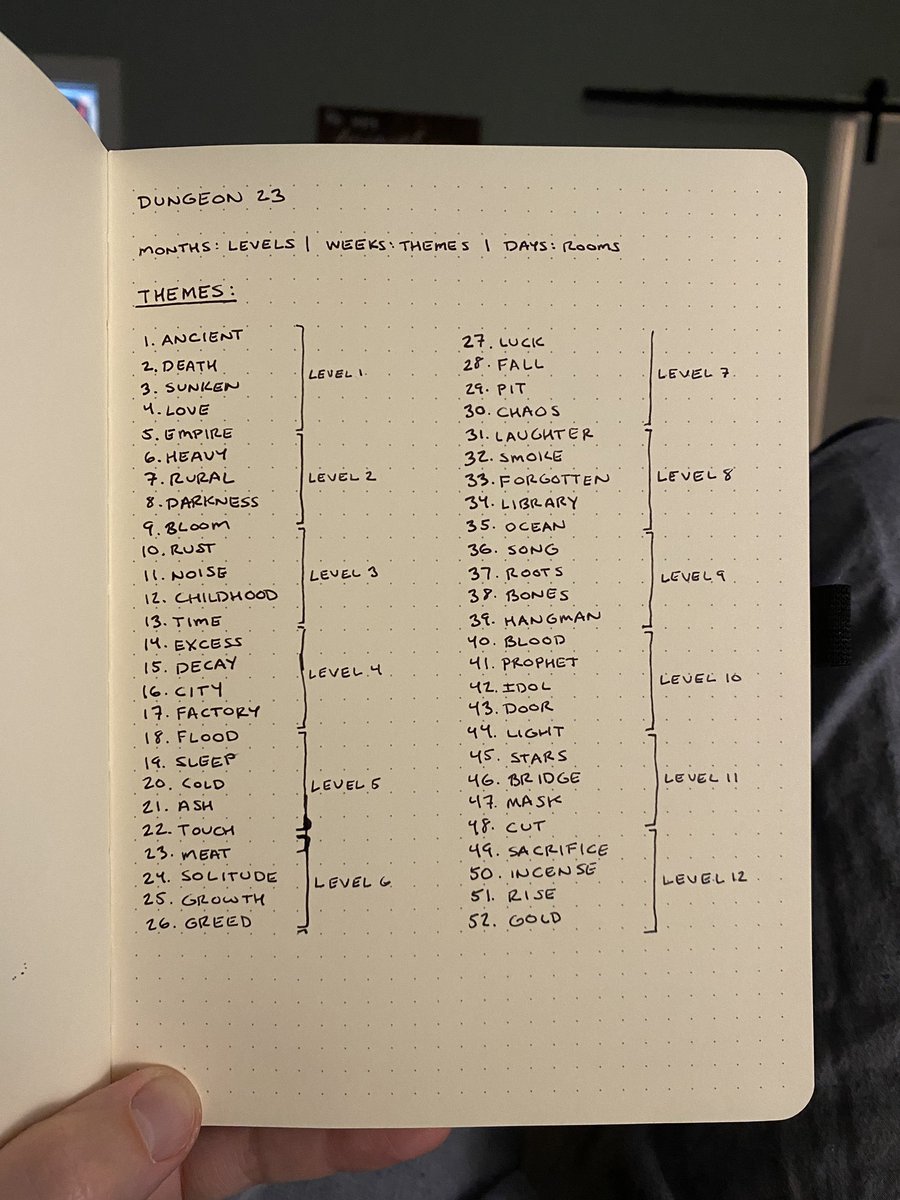 DUNGEON 23
MONTHS: LEVELS | WEEKS: THEMES | DAYS: ROOMS
THEMES:
1. ANCIENT
2. DEATH
3. SUNKEN
4. LOVE
LEVEL 1
5. EMPIRE
6. HEAVY
7. RURAL
8. DARKNESS
LEVEL 2
9. BLOOM
10. RUST
11. NOISE
12. CHILDHOOD
13. TIME
LEVEL 3
14. EXCESS
15. DECAY
16. CITY
17. FACTORY
LEVEL 4
18. FLOOD
19. SLEEP
20. COLD
21. ASH
22. TOUCH
LEVEL 5
23. MEAT
24. SOLITUDE
25. GROWTH
26. GREED
LEVEL 6
27. LUCK
28. FALL
29. PIT
30. CHAOS
LEVEL 7
31. LAUGHTER
32. SMOKE
33. FORGOTTEN
34. LIBRARY
35. OCEAN
LEVEL 8
36. SONG
37. ROOTS
38. BONES
39. HANGMAN
LEVEL 9
40. BLOOD
41. PROPHET
42. IDOL
43. DOOR
LEVEL 10
44. LIGHT
45. STARS
46. BRIDGE
47. MASK
48. CUT
LEVEL 11
49. SACRIFICE
50. INCENSE
51. RISE
52. GOLD
LEVEL 12